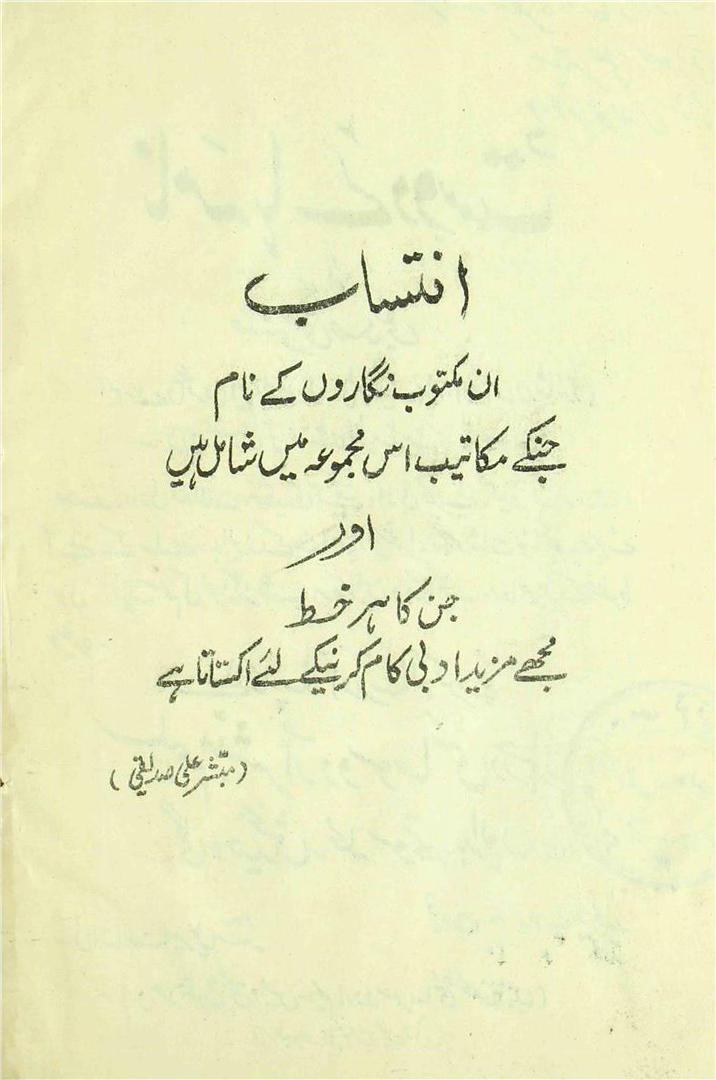 انتساب
ان مکتوب نگاروں کے نام
جنکے مکاتیب اس مجموعہ میں شامل ہیں
اور
جن کا ہر خط
مجھے مزید ادبی کام کرنیکے لئے اکساتا ہے
(مبشر علی صدیقی)